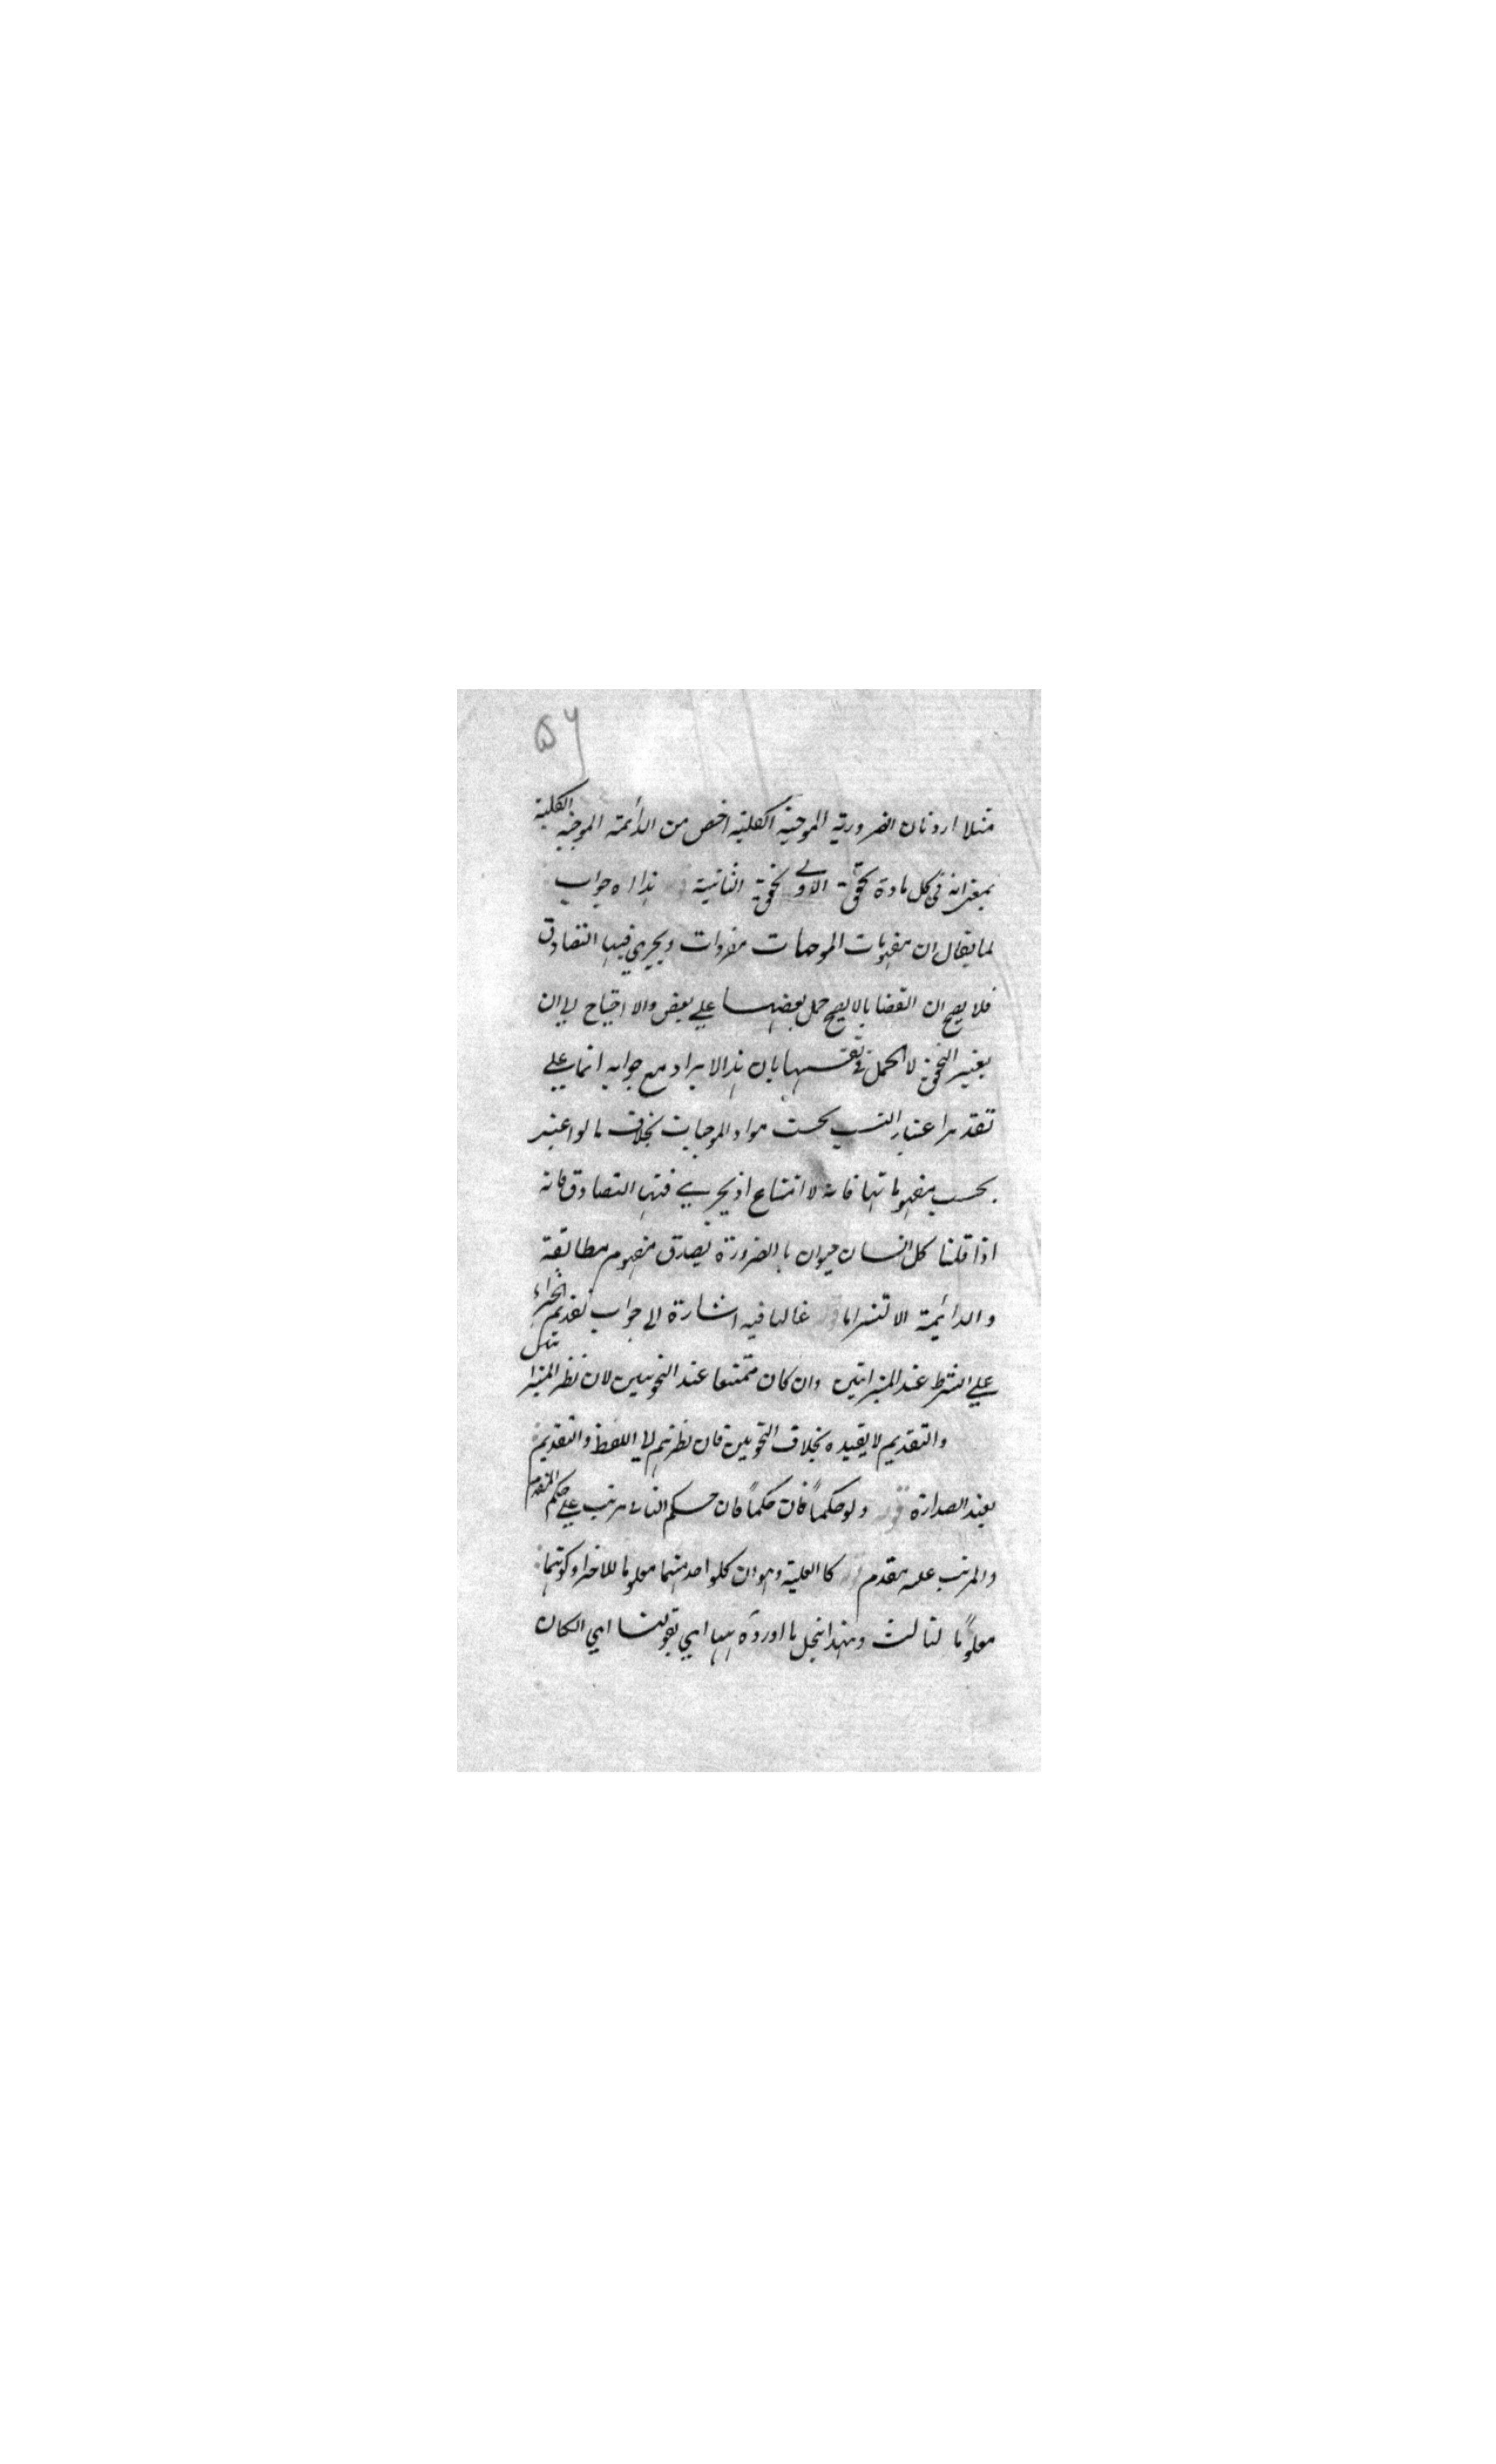 ۵۶
مثلا ارونان الضرورية الموجبة الكلية اخص من الدائمة الموجبة الكلية
بمعنى انه فى كل مادة تحقق الاولى تحقق الثانية هذا اه جواب
لما يقال ان مفهومات الموجهات مفردات ويجري فيها التصادق
فلا يصح ان القضايا لا يصح حمل بعضها على بعض والاحتياج الى ان
يعتبر التحقق لا الحمل فى نفسها بان هذا الايراد مع جوابه انما على
تقدير اعتبار النسب بحسب مواد الموجهات بخلاف ما لو اعتبر
بحسب مفهوماتها فانه لا امتناع اذ يجري فيها التصادق فانه
اذا قلنا كل انسان حيوان بالضرورة يصدق مفهوم مطابقة
والدائمة الا التزاما غالبا فيه اشارة الى جواب تقديم الجزاء
على الشرط عند الميزانيين وان كان ممتنعا عند النحويين لان نظر
والتقديم لا يفيده بخلاف النحويين فان نظرهم الى اللفظ والتقديم
يفيد الصدارة قوله ولو حكماً فان حكماً فان حكم التالى مرتب على حكم المقدم
والمرتب عليه مقدم كالعلية وهو ان كلواحد منهما معلولا للاخر او كونهما
معلولاً لثالث وبهذا ينحل ما اورده اي بقولنا اي الكان